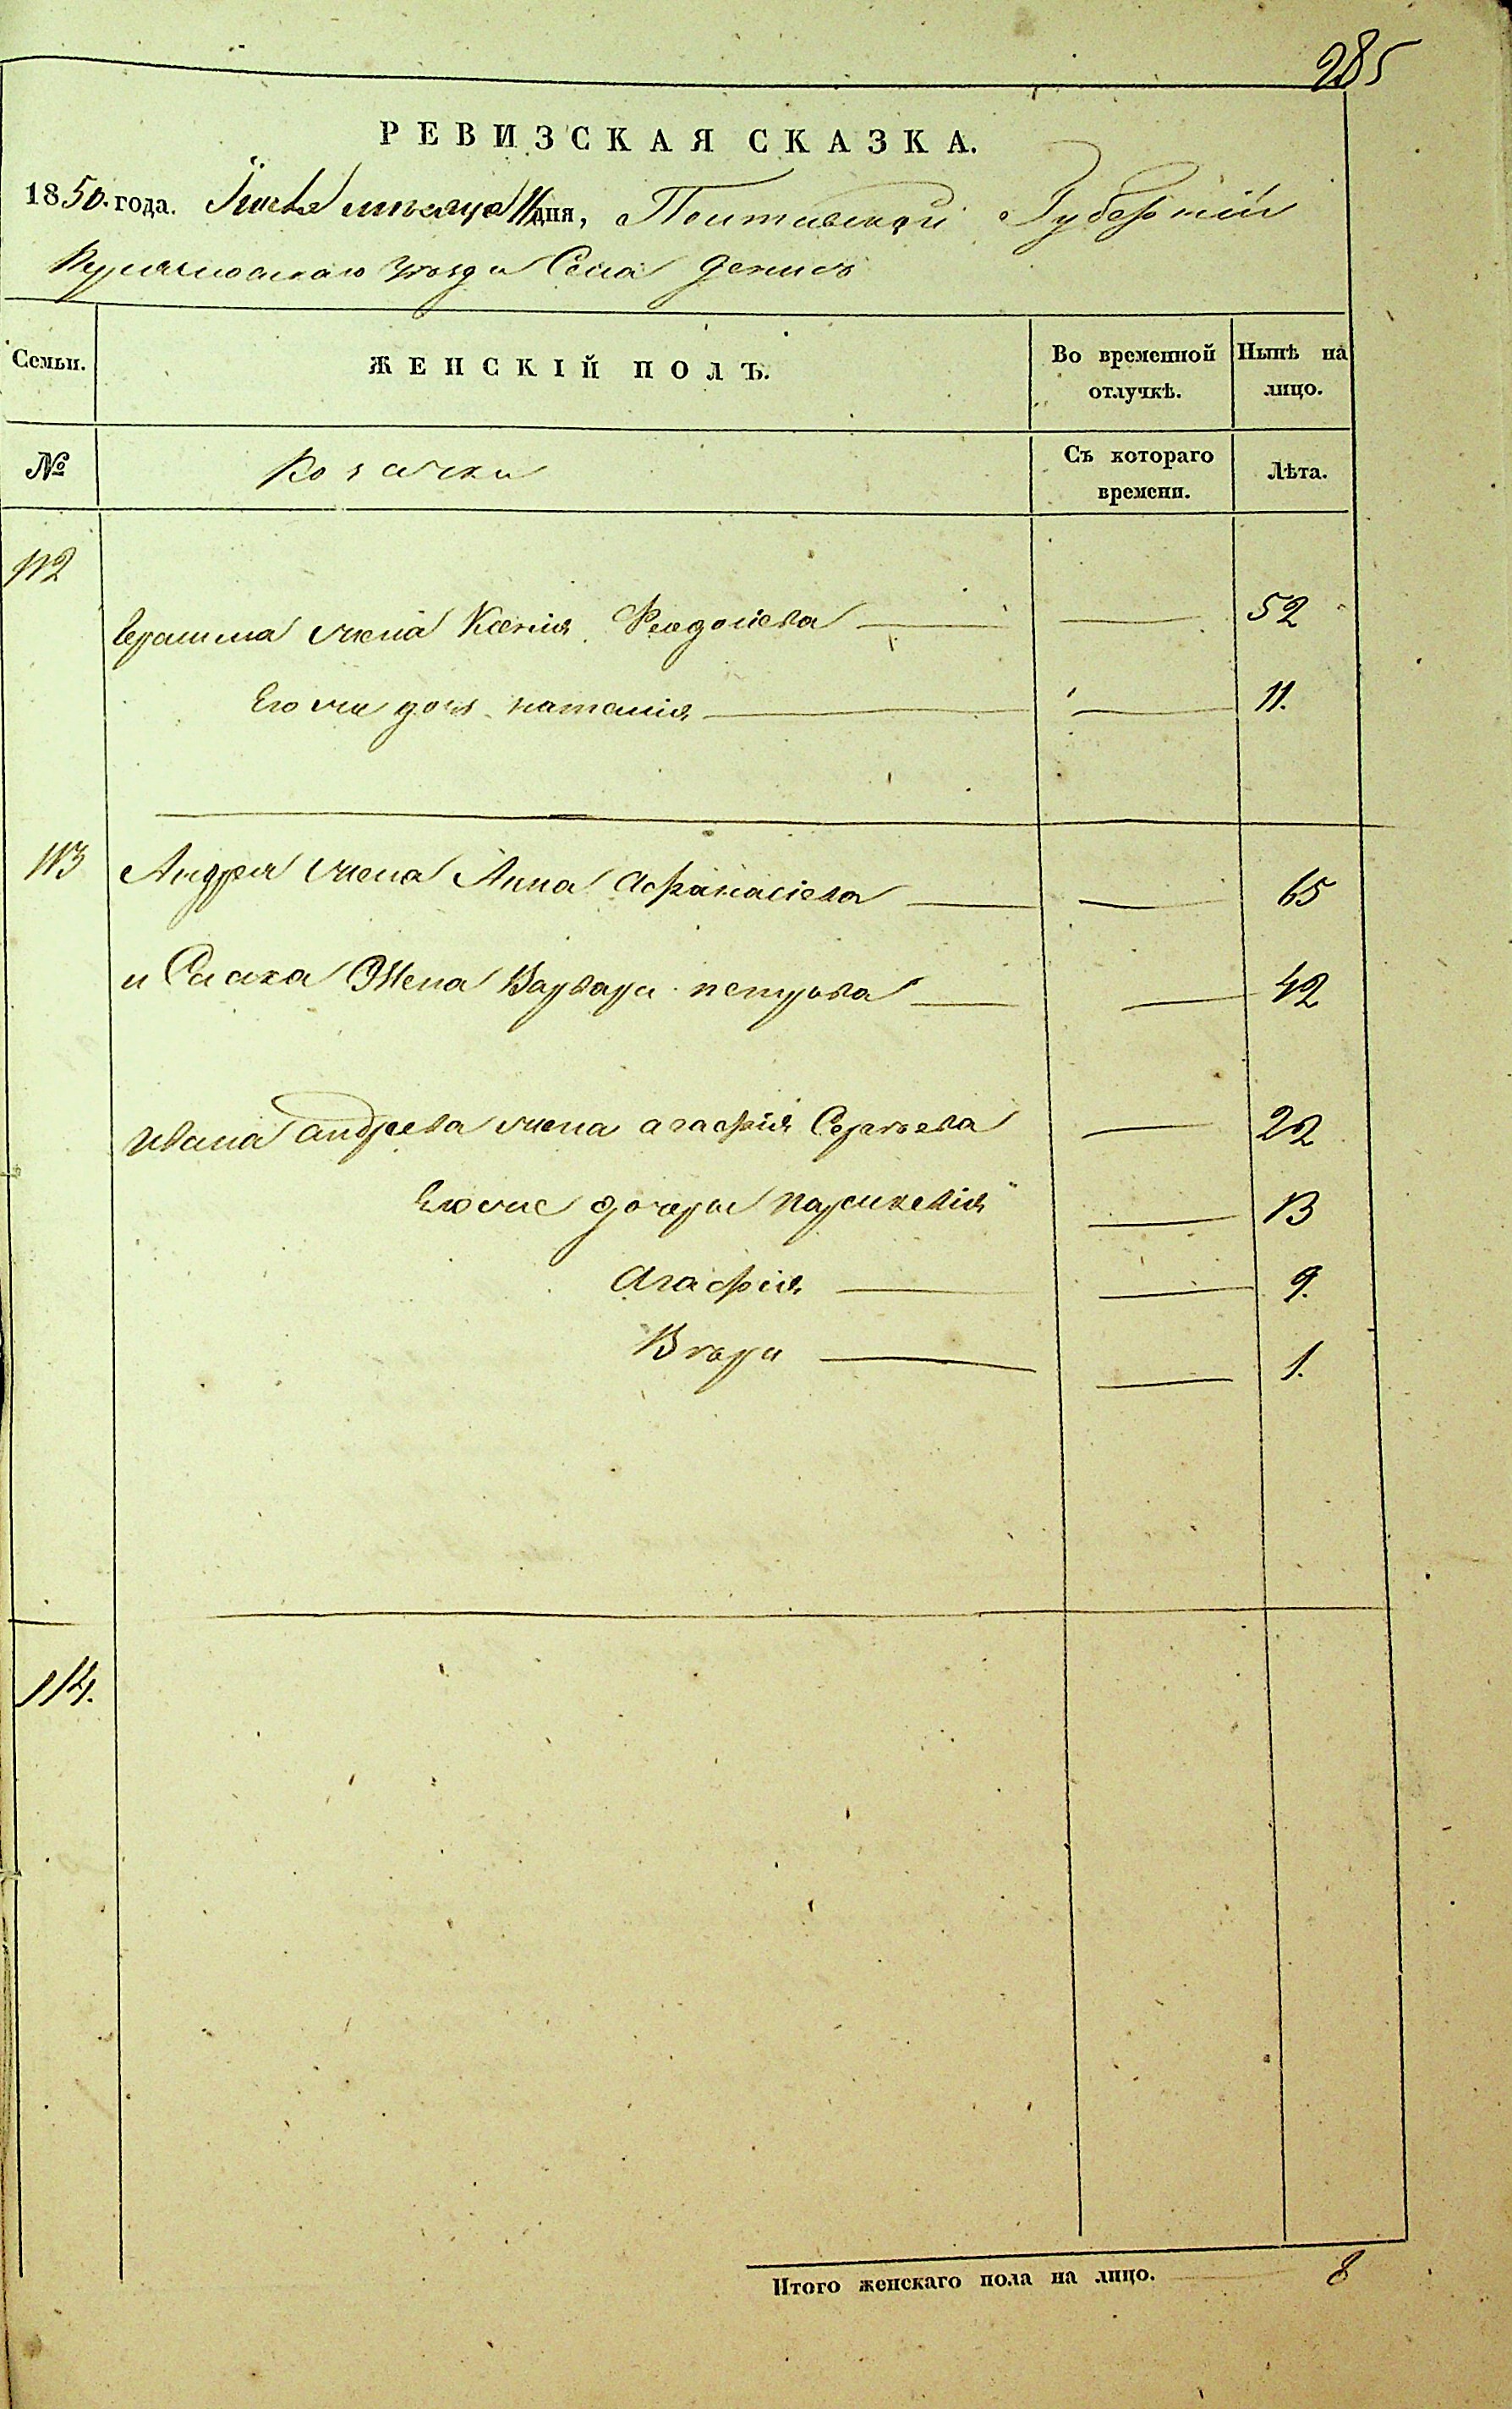 285
РЕВИЗСКАЯ СКАЗКА.
1850. года. Іюля месяца 11 дня, Полтавской Губерніи
Села Денисъ
Семьи.
ЖЕНСКІЙ ПОЛЪ.
Во временной отлучкѣ.
Нынѣ на лицо.
№
Козачки
Съ котораго времени.
Лѣта.
112
жена Ксенія Феодосіева 52
Его же дочь наталія 11.
113 Андрея жена Анна Афанасіева 65
Жена Варвара петрова 42
Ивана андреева жена агафія Сергѣева 22
Его же дочери параскевія 13
Агафія 9.
Вѣра 1.
114.
Итого женскаго пола на лицо. 8